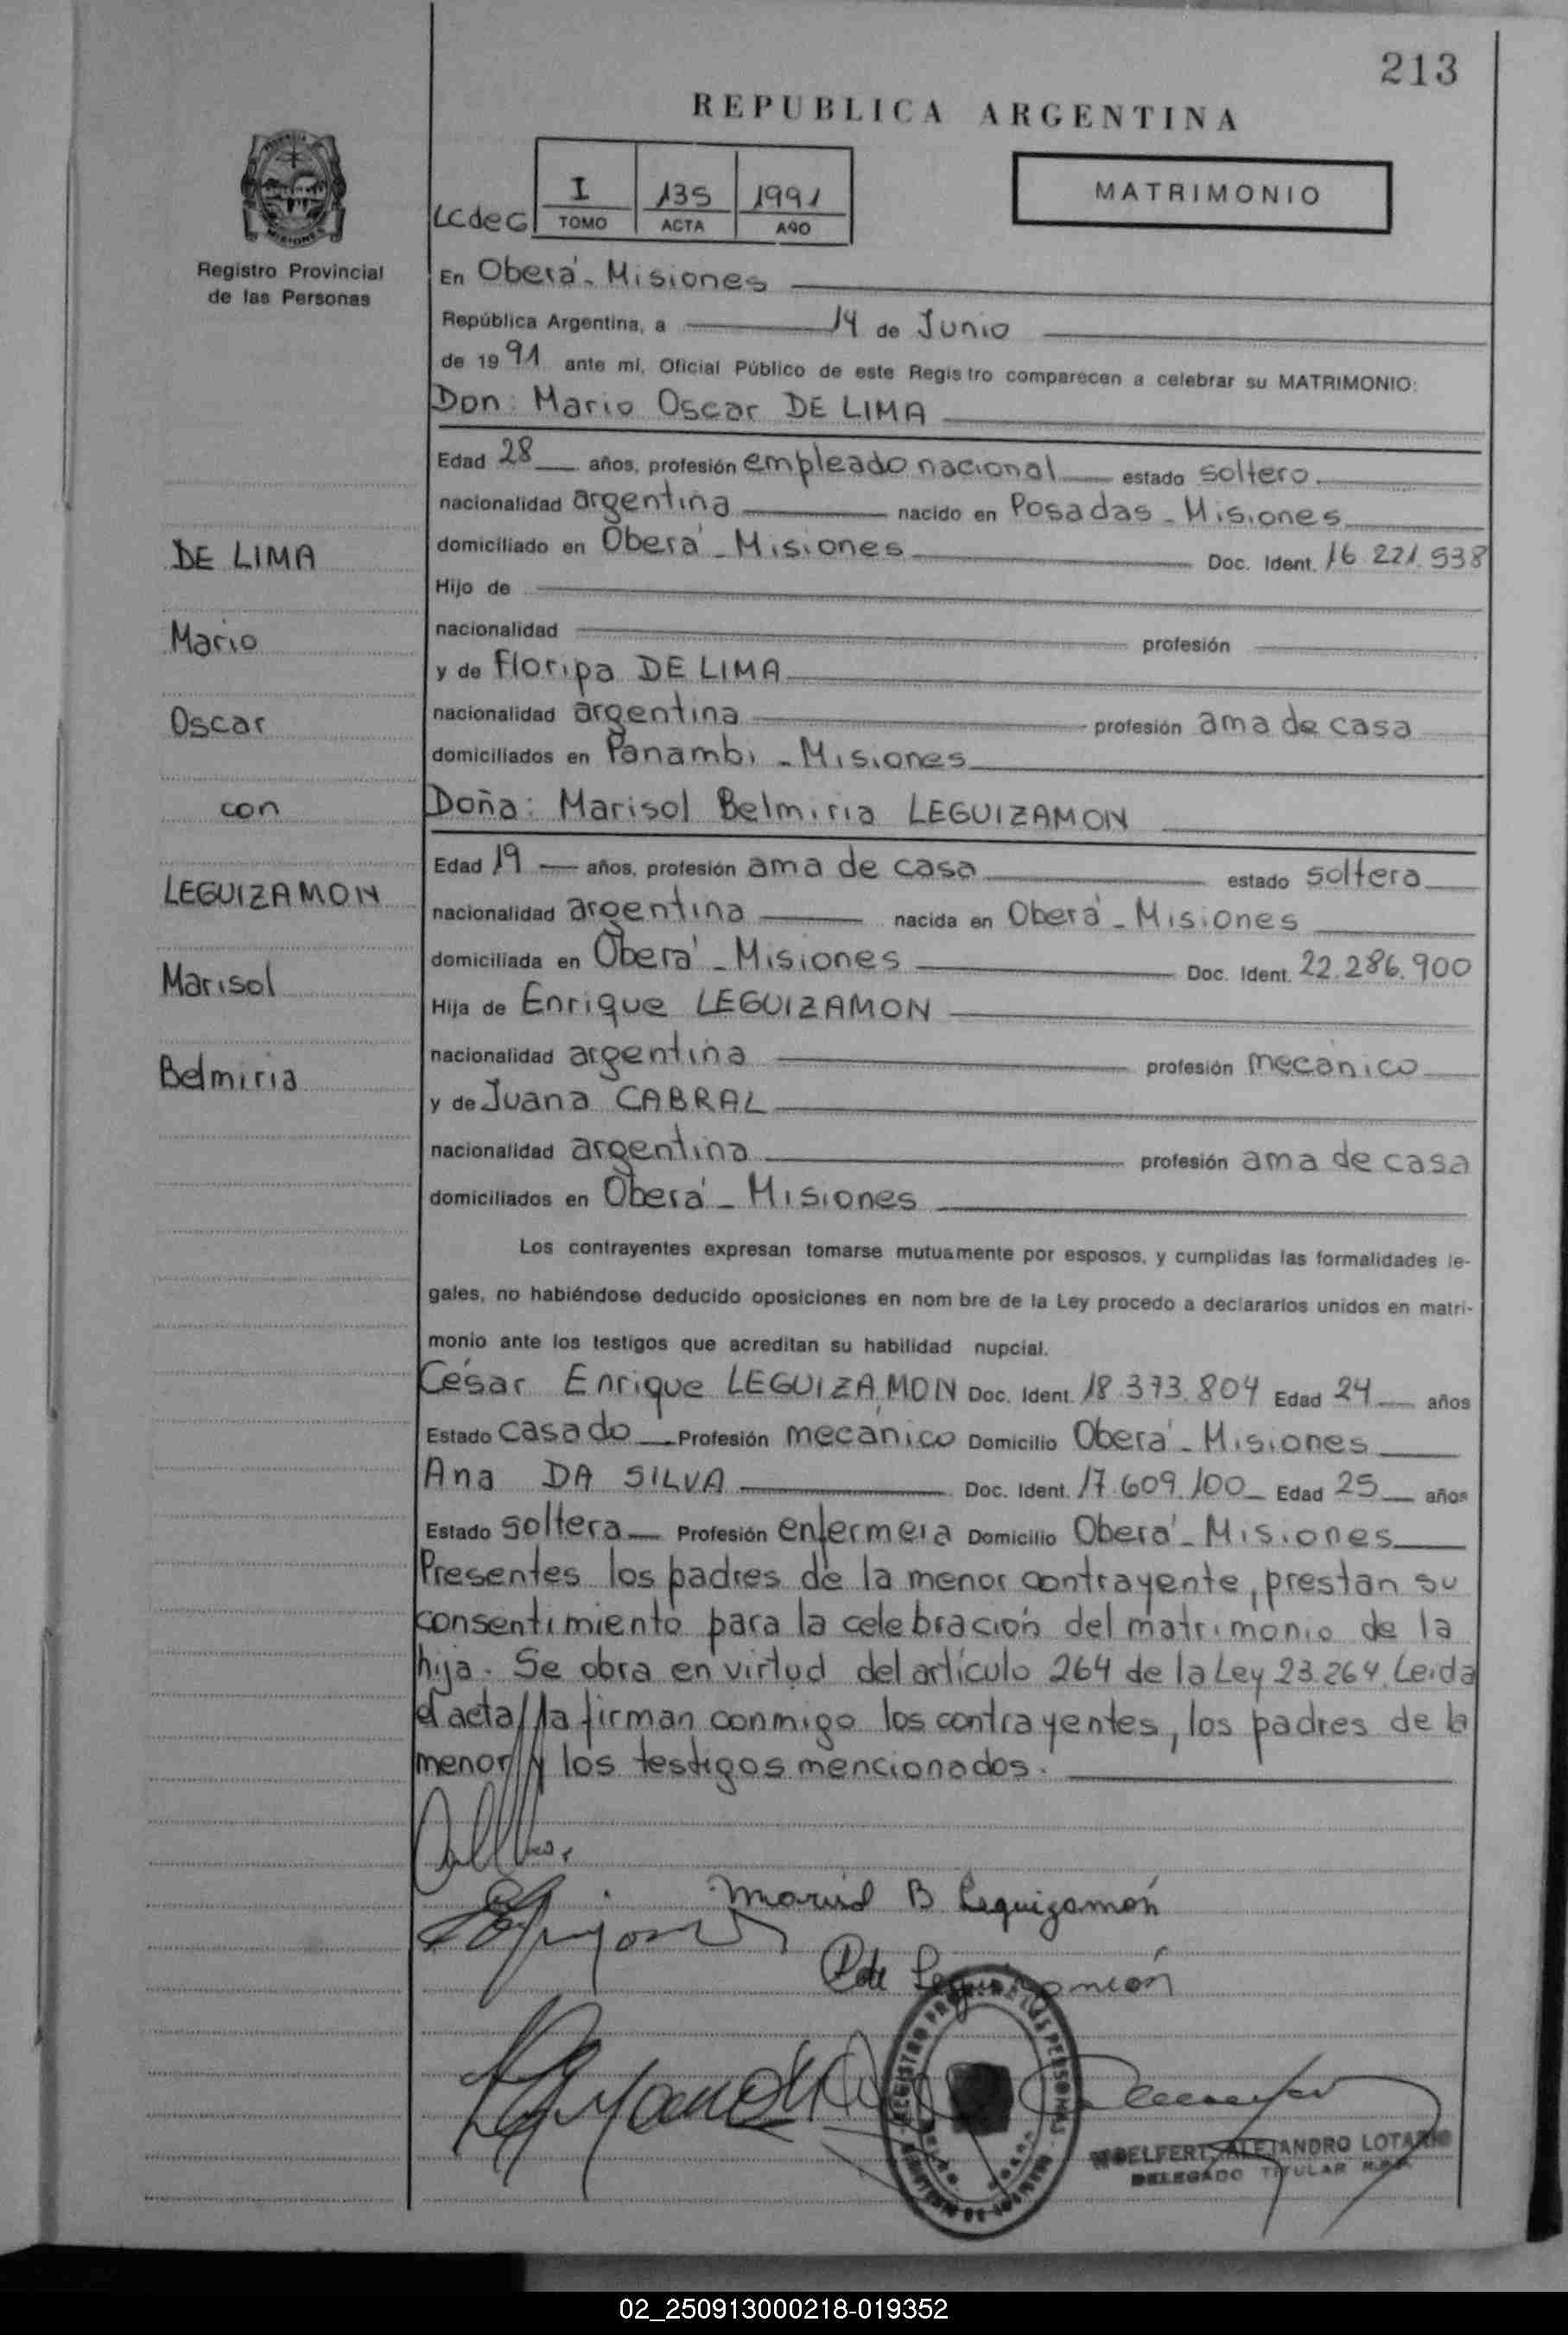 213
REPUBLICA ARGENTINA
MATRIMONIO
LCdeG
I 135 1991
TOMO ACTA AÑO
MISIONES
Registro Provincial
de las Personas
En Oberá - Misiones
República Argentina, a 14 de Junio
de 1991 ante mí, Oficial Público de este Registro comparecen a celebrar su MATRIMONIO:
Don: Mario Oscar DE LIMA
Edad 28 años, profesión empleado nacional estado soltero
nacionalidad argentina nacido en Posadas - Misiones
domiciliado en Oberá - Misiones Doc. Ident. 16.221.538
Hijo de
nacionalidad profesión
y de Floripa DE LIMA
nacionalidad argentina profesión ama de casa
domiciliados en Panambi - Misiones
Doña: Marisol Belmiria LEGUIZAMON
Edad 19 años, profesión ama de casa estado soltera
nacionalidad argentina nacida en Oberá - Misiones
domiciliada en Oberá - Misiones Doc. Ident. 22.286.900
Hija de Enrique LEGUIZAMON
nacionalidad argentina profesión mecánico
y de Juana CABRAL
nacionalidad argentina profesión ama de casa
domiciliados en Oberá - Misiones
DE LIMA
Mario
Oscar
con
LEGUIZAMON
Marisol
Belmiria
Los contrayentes expresan tomarse mutuamente por esposos, y cumplidas las formalidades le-
gales, no habiéndose deducido oposiciones en nom bre de la Ley procedo a declararlos unidos en matri-
monio ante los testigos que acreditan su habilidad nupcial.
César Enrique LEGUIZAMON Doc. Ident. 18.373.804 Edad 24 años
Estado casado Profesión mecánico Domicilio Oberá - Misiones
Ana DA SILVA Doc. Ident. 17.609.100 Edad 25 años
Estado soltera Profesión enfermera Domicilio Oberá - Misiones
Presentes los padres de la menor contrayente, prestan su
consentimiento para la celebración del matrimonio de la
hija. Se obra en virtud del artículo 264 de la Ley 23.264. Leída
el acta, la firman conmigo los contrayentes, los padres de la
menor y los testigos mencionados.
Marisol B Leguizamón
de Leguizamón
REGISTRO PROV. DE LAS PERSONAS
ALEJANDRO LOTARIO
DELEGADO TITULAR
02_250913000218-019352